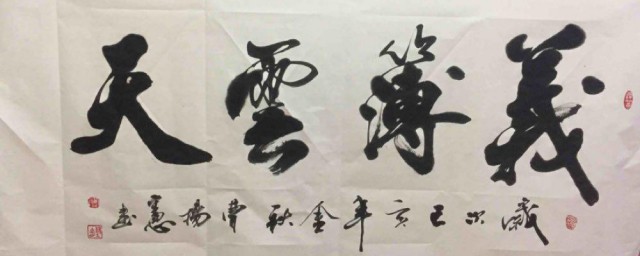 義簿雲天
歲次己亥年金秋曹楊憲書